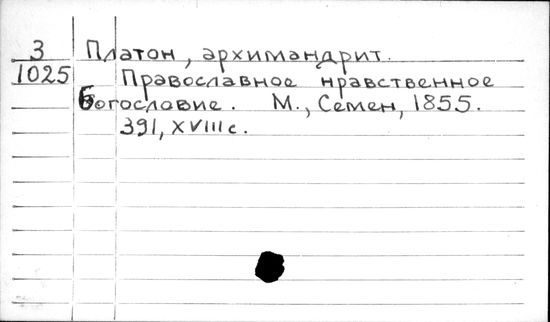 З Платон, архимандрит.
1025 Православное нравственное
богословие. М., Семен, 1855.
391, XVIII с.